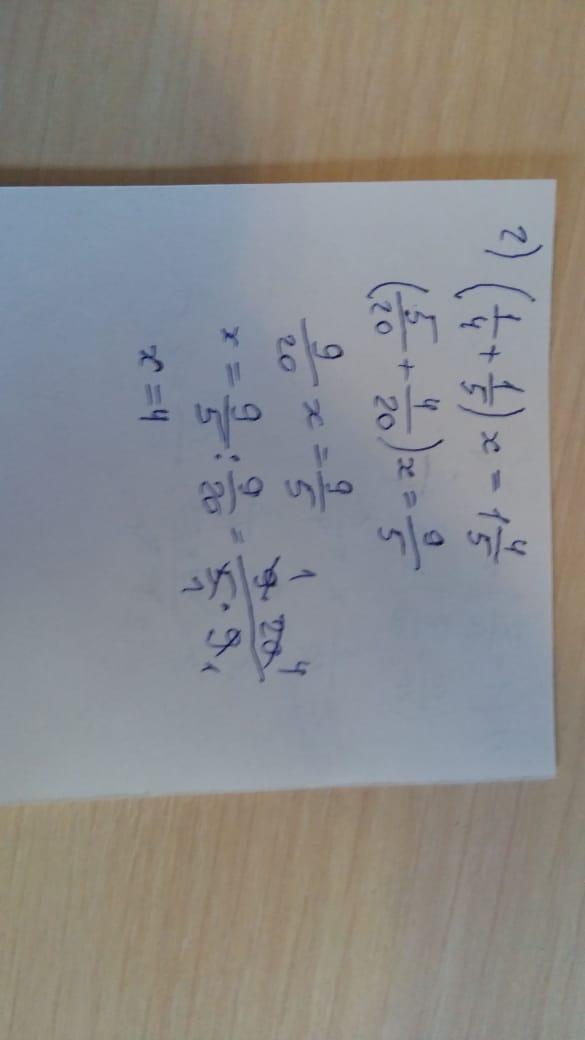 2) (1/4 + 1/5) x = 1 4/5
(5/20 + 4/20) x = 9/5
9/20 x = 9/5
x = 9/5 : 9/20 = 9 · 20/5 · 9 1 4 1 1
x = 4